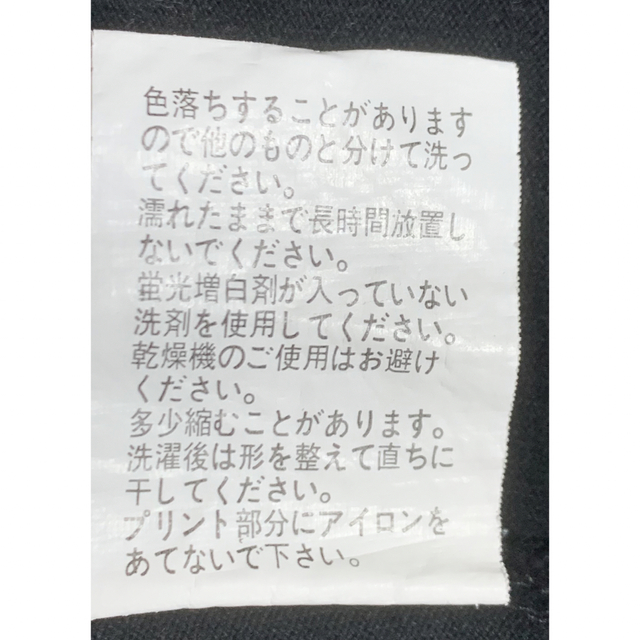 色落ちすることがあります
ので他のものと分けて洗っ
てください。
濡れたままで長時間放置し
ないでください。
蛍光増白剤が入っていない
洗剤を使用してください。
乾燥機のご使用はお避け
ください。
多少縮むことがあります。
洗濯後は形を整えて直ちに
干してください。
プリント部分にアイロンを
あてないで下さい。